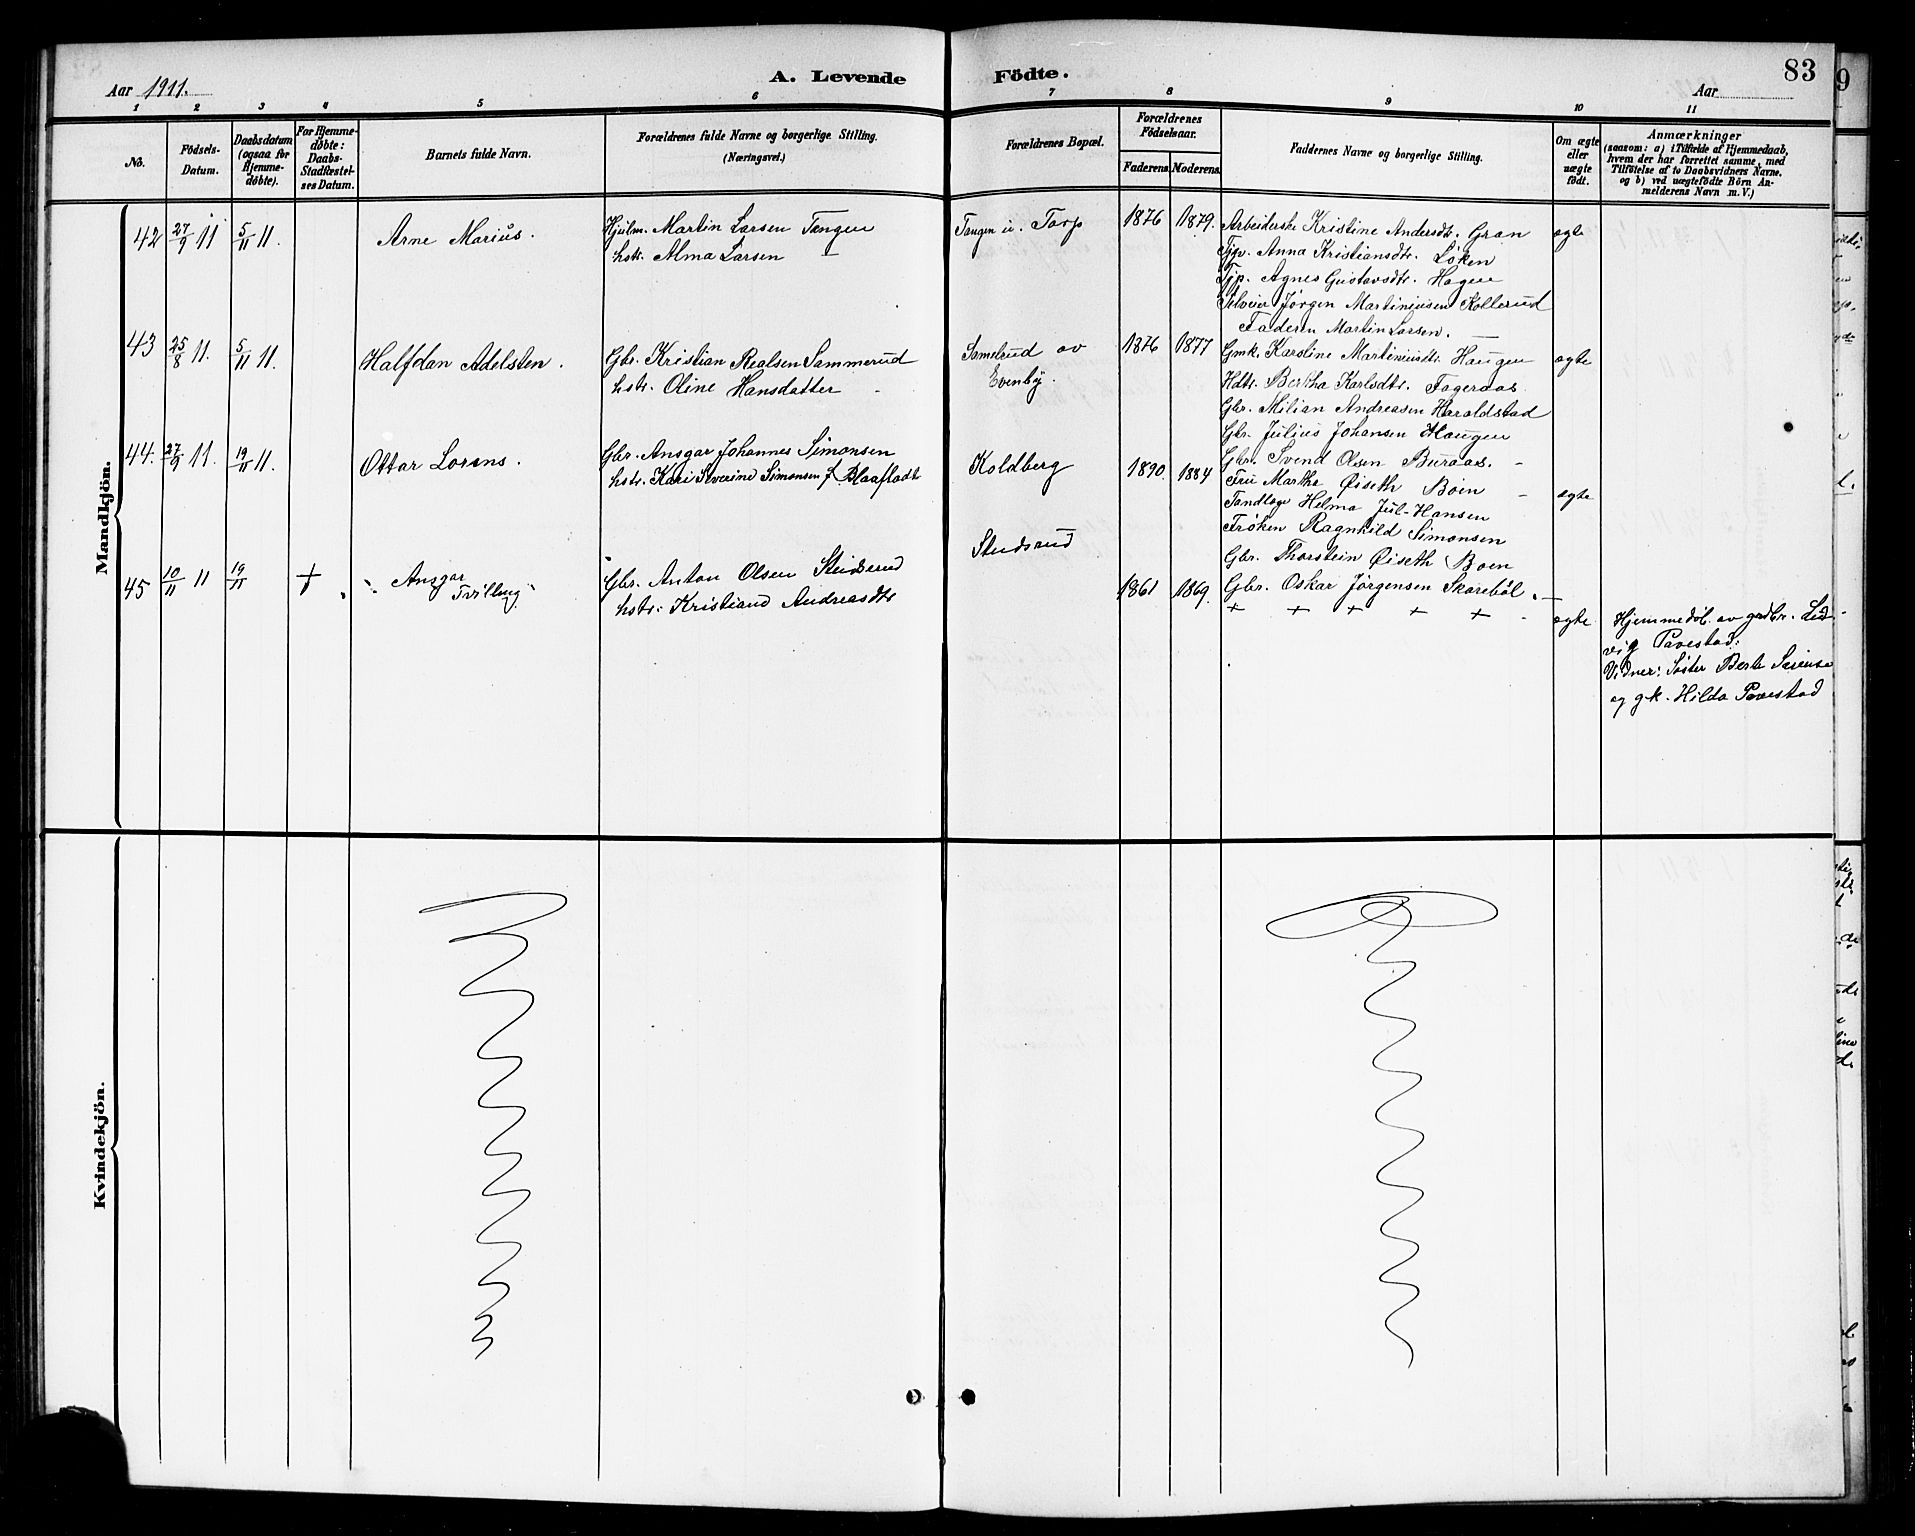 Aar 1911.
A. Levende Födte.
Aar
83
1 2 3 4 5 6 7 8 9 10 11
No.
Födsels-
Datum.
Daabsdatum
(ogsaa for
Hjemme-
døbte).
For Hjemme-
døbte:
Daabs-
Stadfæstel-
ses Datum.
Barnets fulde Navn.
Forældrenes fulde Navne og borgerlige Stilling.
(Næringsvei.)
Forældrenes Bopæl.
Forældrenes
Födselsaar.
Faderens. Moderens.
Faddernes Navne og borgerlige Stilling.
Om ægte
eller
uægte
født.
Anmærkninger
(saasom: a) i Tilfælde af Hjemmedaab,
hvem der har forrettet samme, med
Tilføielse af to Daabsvidners Navne,
og b) ved uægtefødte Börn An-
melderens Navn m. V.)
Mandkjön.
42 27/9 11 5/11 11. Arne Marius.
Hjulm. Martin Larsen Tangen
hstr. Alma Larsen
Tangen u. Torp
1876 1879.
Arbeiderske Kristine Andersdtr. Gran
Tjp. Anna Kristiansdtr. Løken
Tjp. Agnes Gustavsdtr. Hagen
Jørgen Martiniusen Kollerud
Faderen Martin Larsen.
ægte
43 25/8 11. 5/11 11. Halfdan Adelsten.
Gbr. Kristian Realsen Sammerud
hstr. Oline Hansdatter
Samelrud av
Evenby.
1876 1877
Gmk. Karoline Martiniusdtr. Haugen
Hdtr. Bertha Karlsdtr. Fageraas
Gbr. Milian Andreasen Haraldstad
Gbr. Julius Johansen Haugen
Gbr. Svend Olsen Buraas.
ægte
44. 27/9 11. 19/11 11. Ottar Lorens.
Gbr. Ansgar Johannes Simonsen
hstr. Kari Severine Simonsen f. Blaafladt
Koldberg
1890. 1884
Fru Marthe Øiseth Bøen
Tandlæge Helma Jul-Hansen
Frøken Ragnhild Simonsen
Gbr. Thorstein Øiseth Boen
Gbr. Oskar Jørgensen Skarebøl.
ægte
45 10/11 11 19/11 + Ansgar
Tvilling
Gbr. Anton Olsen Studsrud
hstr. Kristiane Andreasdtr
Studsrud
1861 1869.
+ + + + +
ægte
Hjemmedøb. av grdbr. Lud-
vig Pavestad.
Vidner: Søster Berte Sørense
og gk. Hilda Pavestad
Kvindekjön.